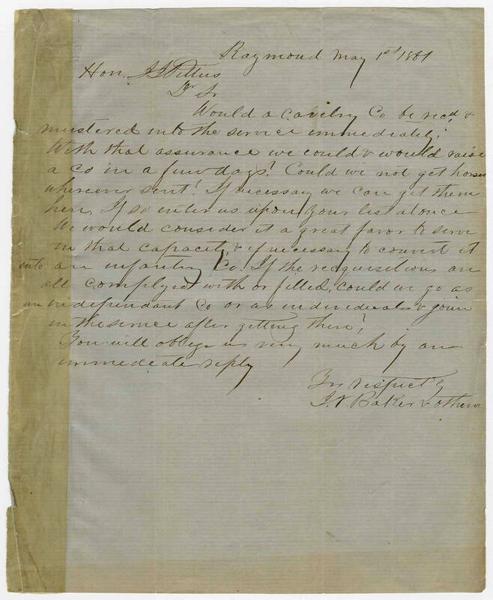 Raymond May 1st 1861
Hon. J J Pettus
Dr Sir
Would a cavelry Co be recd &
mustered into the service immediately?
With that assurance we could & would raise
a co in a few days! Could we not get horses
wherever sent? If necessary we can get them
here, If so enter us upon your list at once
We would consider it a great favor to serve
in that capacity, & if necessary to convert it
into an infantry Co. If the requisitions are
all complyed with or filled, could we go as
an independant Co or as individuals & join
in the service after getting there?
You will oblige us very much by an
immediate reply
Yrs respectly
J. V Baker & others